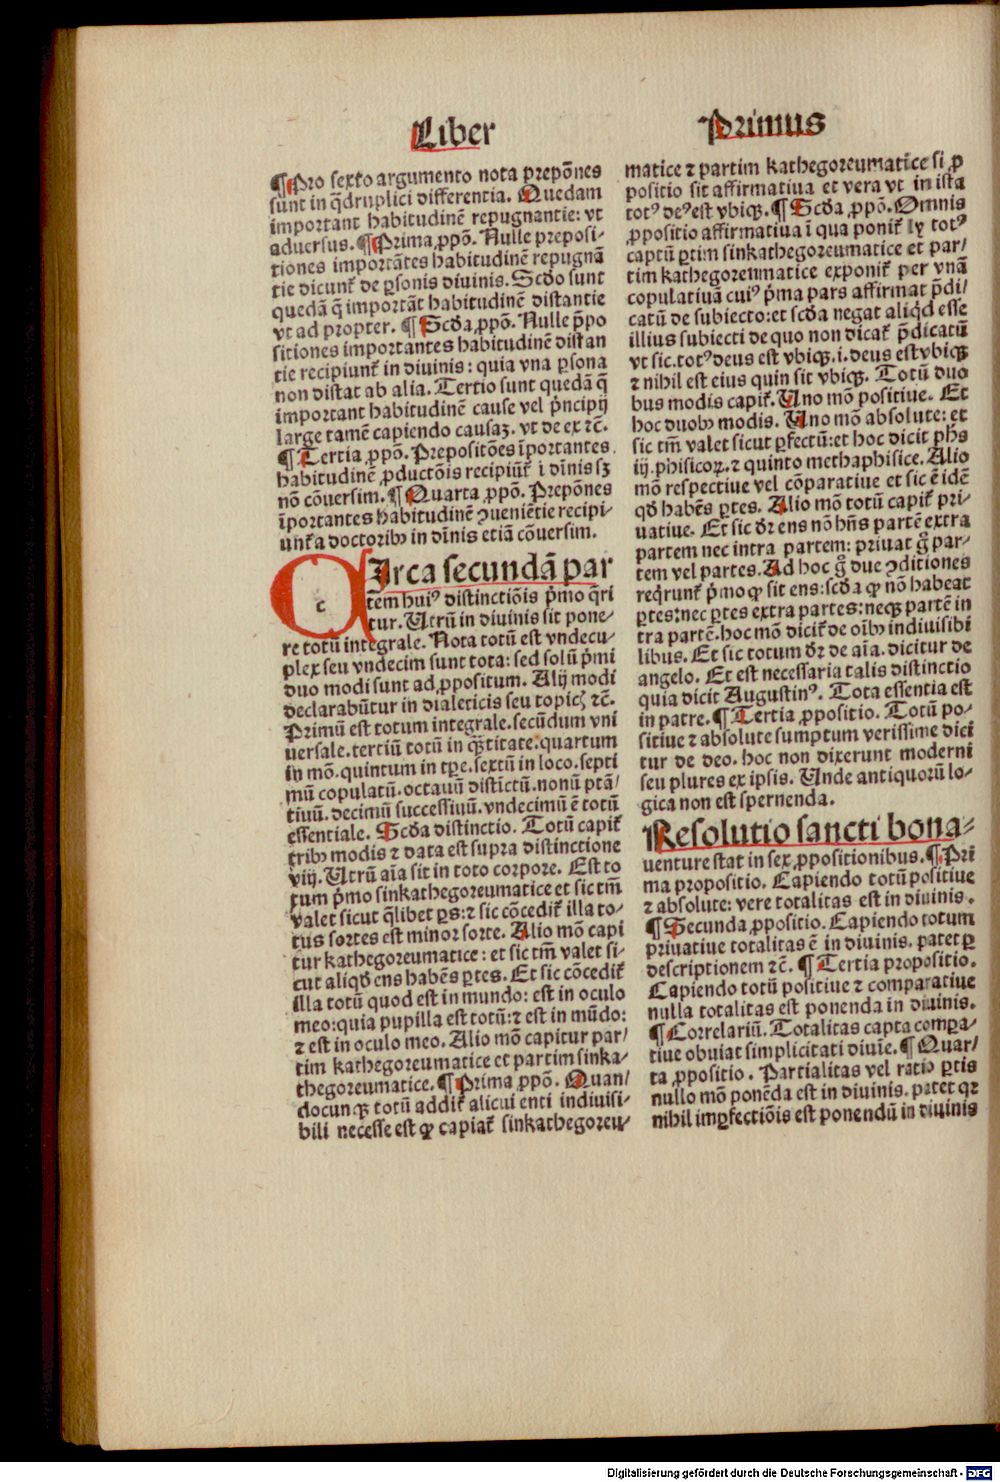 Liber
Primus
¶Pro sexto argumento nota prepõnes
sunt in q̃druplici differentia. Quedam
important habitudinẽ repugnantie: vt
aduersus. ¶Prima ꝓpõ. Nulle preposi-
tiones importãtes habitudinẽ repugnã
tie dicunt᷑ de ꝑsonis diuinis. Scďo sunt
quedã q̃ importãt habitudinẽ distantie
vt ad propter. ¶Scďa ꝓpõ. Nulle p̃po
sitiones importantes habitudinẽ distan
tie recipiunt᷑ in diuinis: quia vna ꝑsona
non distat ab alia. Tertio sunt quedã q̃
important habitudinẽ cause vel pͥncipij
large tamẽ capiendo causaꝫ. vt de ex ⁊c̃.
¶Tertia ꝓpõ. Prepositões ĩportantes
habitudinẽ ꝓductõis recipiũt᷑ ĩ diñis sꝫ
nõ cõuersim. ¶Quarta ꝓpõ. Prepõnes
ĩportantes habitudinẽ ↄueniẽtie recipi-
unt᷑ a doctoribꝰ in diñis etiã cõuersim.
c
Irca secundã par
tem huiꝰ distinctiõis pͥmo q̃ri
tur. Utrũ in diuinis sit pone-
re totũ integrale. Nota totũ est vndecu-
plex seu vndecim sunt tota: sed solũ pͥmi
duo modi sunt ad ꝓpositum. Alij modi
declarabũtur in dialeticis seu topicꝭ ⁊c̃.
Primũ est totum integrale. secũdum vni
uersale. tertiũ totũ in q̃titate. quartum
in mõ. quintum in tꝑe. sextũ in loco. septi
mũ copulatũ. octauũ distĩctũ. nonũ ptã/
tiuũ. decimũ successiuũ. vndecimũ ẽ totũ
essentiale. Scďa distinctio. Totũ capit᷑
tribꝰ modis ⁊ data est supra distinctione
viij. Utrũ aĩa sit in toto corpore. Est to
tum pͥmo sinkathegoreumatice et sic tm̃
valet sicut q̃libet ꝑs: ⁊ sic cõcedit᷑ illa to-
tus sortes est minor sorte. Alio mõ capi
tur kathegoreumatice: et sic tm̃ valet si-
cut aliqďens habẽs ꝑtes. Et sic cõcedit᷑
illa totũ quod est in mundo: est in oculo
meo: quia pupilla est totũ: ⁊ est in mũdo:
⁊ est in oculo meo. Alio mõ capitur par/
tim kathegoreumatice et partim sinka-
thegoreumatice. ¶Prima ꝓpõ. Quan/
docunqꝫ totũ addit᷑ alicui enti indiuisi-
bili necesse est ꝙ capiat᷑ sinkathegoreu-
matice ⁊ partim kathegoreumatice si ꝓ
positio sit affirmatiua et vera vt in ista
totꝰ deꝰ est vbiqꝫ. ¶Scďa ꝓpõ. Omnis
ꝓpositio affirmatiua ĩ qua ponit᷑ ly totꝰ
captũ ꝑtim sinkathegoreumatice et par/
tim kathegoreumatice exponit᷑ per vnã
copulatiuã cuiꝰ pͥma pars affirmat p̃di/
catũ de subiecto: et scďa negat aliqď esse
illius subiecti de quo non dicat᷑ p̃dicatũ
vt sic. totꝰ deus est vbiqꝫ. i. deus est vbiqꝫ
⁊ nihil est eius quin sit vbiqꝫ. Totũ duo
bus modis capit᷑. Uno mõ positiue. Et
hoc duobꝰ modis. Uno mõ absolute: et
sic tm̃ valet sicut ꝑfectũ: et hoc dicit ph̃s
iij. phisicoꝝ. ⁊ quinto methaphisice. Alio
mõ respectiue vel cõparatiue et sic ẽ idẽ
qď habẽs ꝑtes. Alio mõ totũ capit᷑ pri-
uatiue. Et sic dr̃ ens nõ hñs partẽ extra
partem nec intra partem: priuat g̃ par-
tem vel partes. Ad hoc g̃ due ↄditiones
reqͥrunt᷑ pͥmo ꝙ sit ens: scďa ꝙ nõ habeat
ꝑtes: nec ꝑtes extra partes: neqꝫ partẽ in
tra partẽ. hoc mõ dicit᷑ de oĩbꝰ indiuisibi
libus. Et sic totum dr̃ de aĩa. dicitur de
angelo. Et est necessaria talis distinctio
quia dicit Augustinꝰ. Tota essentia est
in patre. ¶Tertia ꝓpositio. Totũ po-
sitiue ⁊ absolute sumptum verissime dici
tur de deo. hoc non dixerunt moderni
seu plures ex ipsis. Unde antiquorũ lo-
gica non est spernenda.
Resolutio sancti bona-
uenture stat in sex ꝓpositionibus. ¶Pri
ma propositio. Capiendo totũ positiue
⁊ absolute: vere totalitas est in diuinis.
¶Secunda ꝓpositio. Capiendo totum
priuatiue totalitas ẽ in diuinis. patet ꝑ
descriptionem ⁊c̃. ¶Tertia propositio.
Capiendo totũ positiue ⁊ comparatiue
nulla totalitas est ponenda in diuinis.
¶Correlariũ. Totalitas capta comꝑa-
tiue obuiat simplicitati diuĩe. ¶Quar/
ta ꝓpositio. Partialitas vel ratio ꝑtis
nullo mõ ponẽda est in diuinis. patet qꝛ
nihil imꝑfectiõis est ponendũ in diuinis
Digitalisierung gefördert durch die Deutsche Forschungsgemeinschaft - DFG